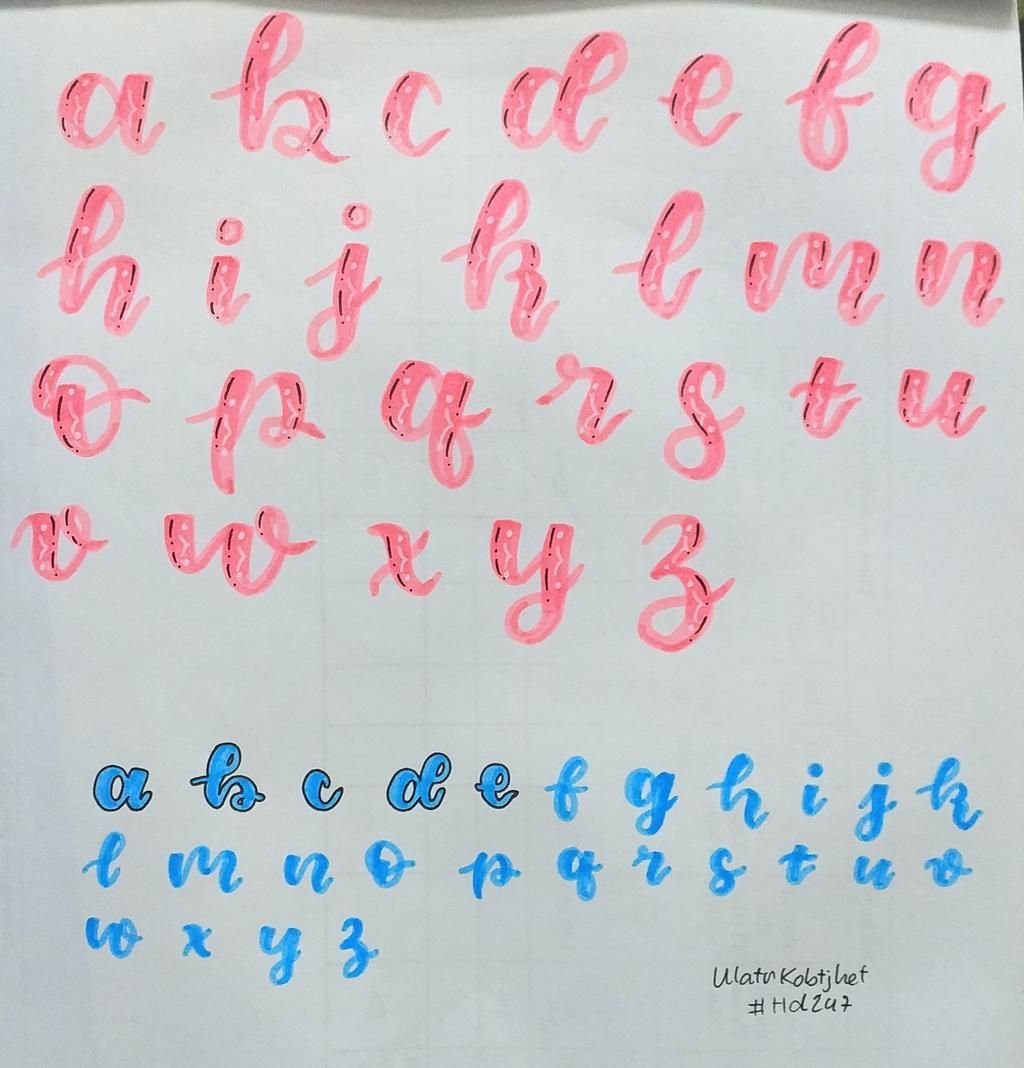 a b c d e f g
h i j k l m n
o p q r s t u
v w x y z
a b c d e f g h i j k
l m n o p q r s t u v
w x y z
#Hd2u7